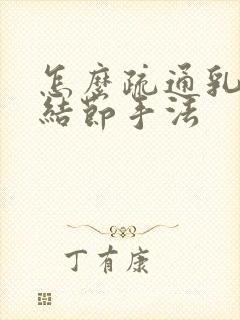 怎麼疏通乳
結節手法
丁有康